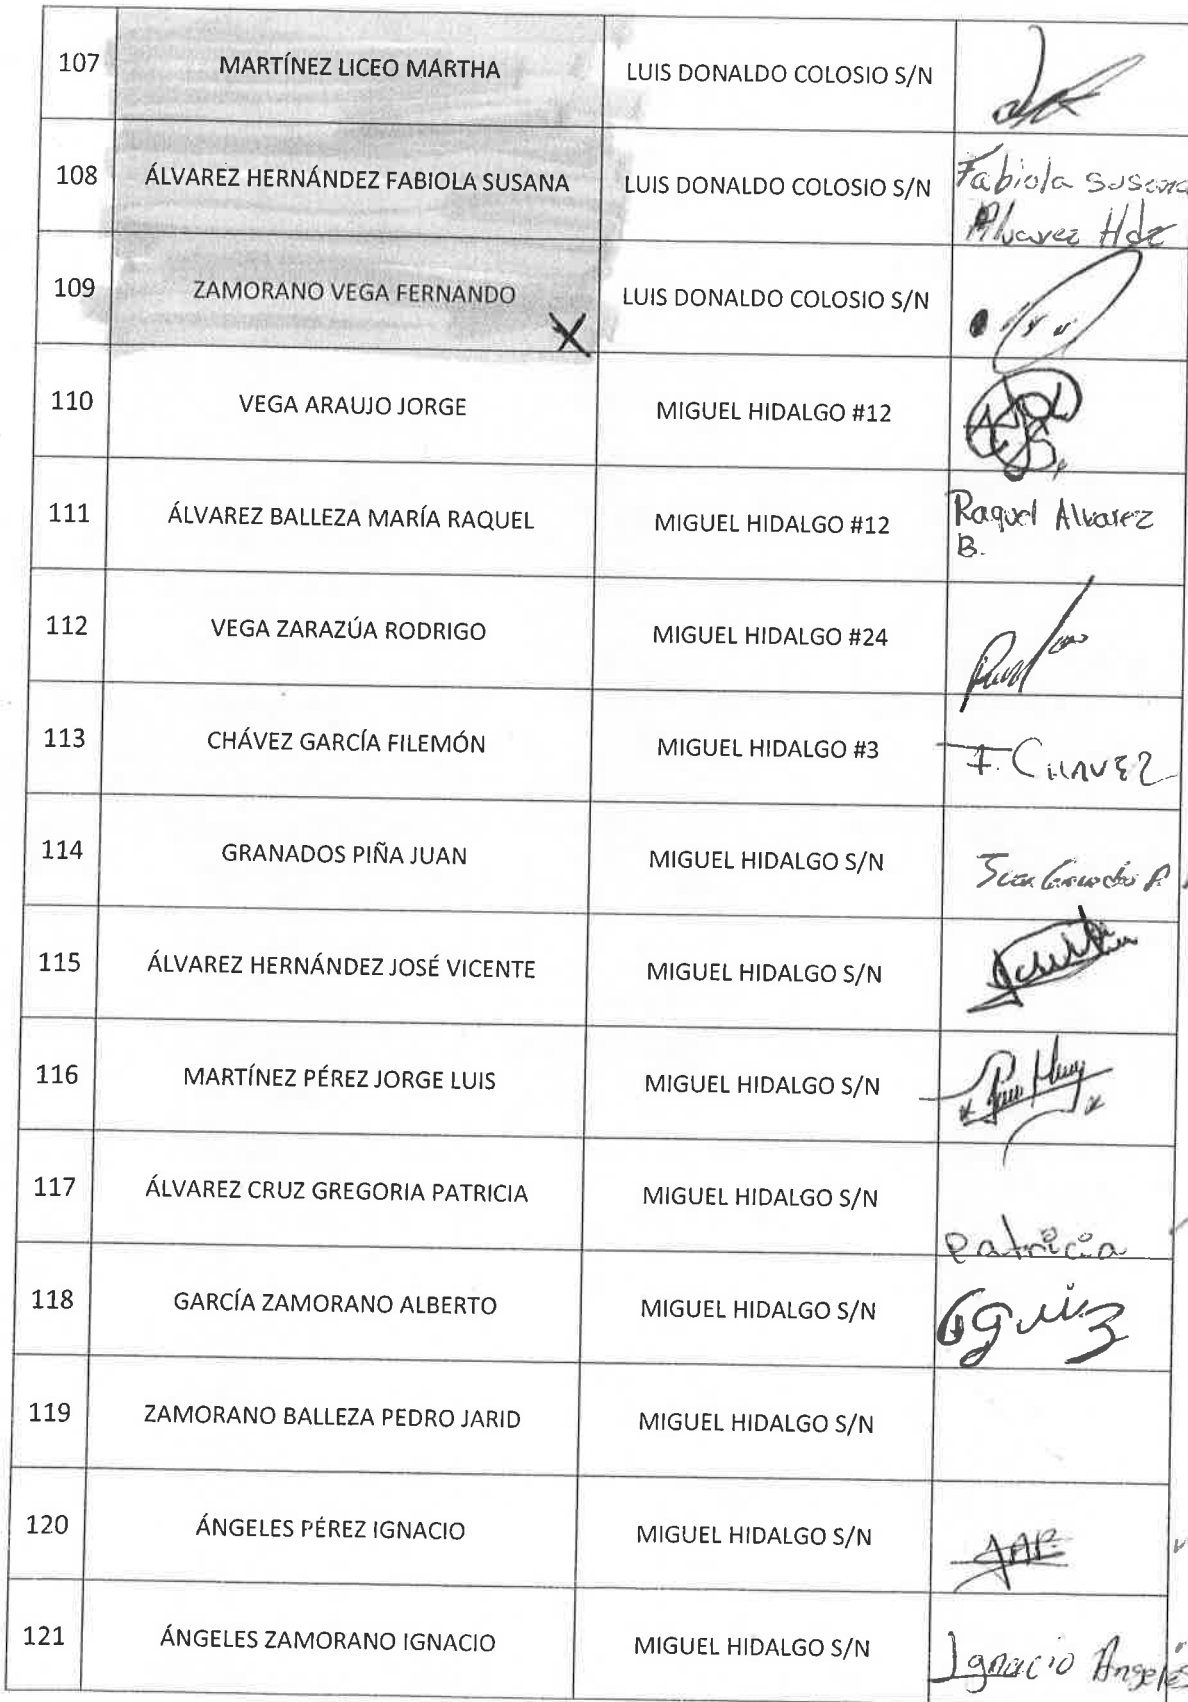 107 MARTÍNEZ LICEO MARTHA LUIS DONALDO COLOSIO S/N
108 ÁLVAREZ HERNÁNDEZ FABIOLA SUSANA LUIS DONALDO COLOSIO S/N Fabiola Susana
Alvarez Hdz
109 ZAMORANO VEGA FERNANDO LUIS DONALDO COLOSIO S/N
X
110 VEGA ARAUJO JORGE MIGUEL HIDALGO #12
111 ÁLVAREZ BALLEZA MARÍA RAQUEL MIGUEL HIDALGO #12 Raquel Alvarez
B.
112 VEGA ZARAZÚA RODRIGO MIGUEL HIDALGO #24
113 CHÁVEZ GARCÍA FILEMÓN MIGUEL HIDALGO #3 F. CHAVEZ
114 GRANADOS PIÑA JUAN MIGUEL HIDALGO S/N Juan Granados P
115 ÁLVAREZ HERNÁNDEZ JOSÉ VICENTE MIGUEL HIDALGO S/N
116 MARTÍNEZ PÉREZ JORGE LUIS MIGUEL HIDALGO S/N
117 ÁLVAREZ CRUZ GREGORIA PATRICIA MIGUEL HIDALGO S/N Patricia
118 GARCÍA ZAMORANO ALBERTO MIGUEL HIDALGO S/N
119 ZAMORANO BALLEZA PEDRO JARID MIGUEL HIDALGO S/N
120 ÁNGELES PÉREZ IGNACIO MIGUEL HIDALGO S/N
121 ÁNGELES ZAMORANO IGNACIO MIGUEL HIDALGO S/N Ignacio Angeles